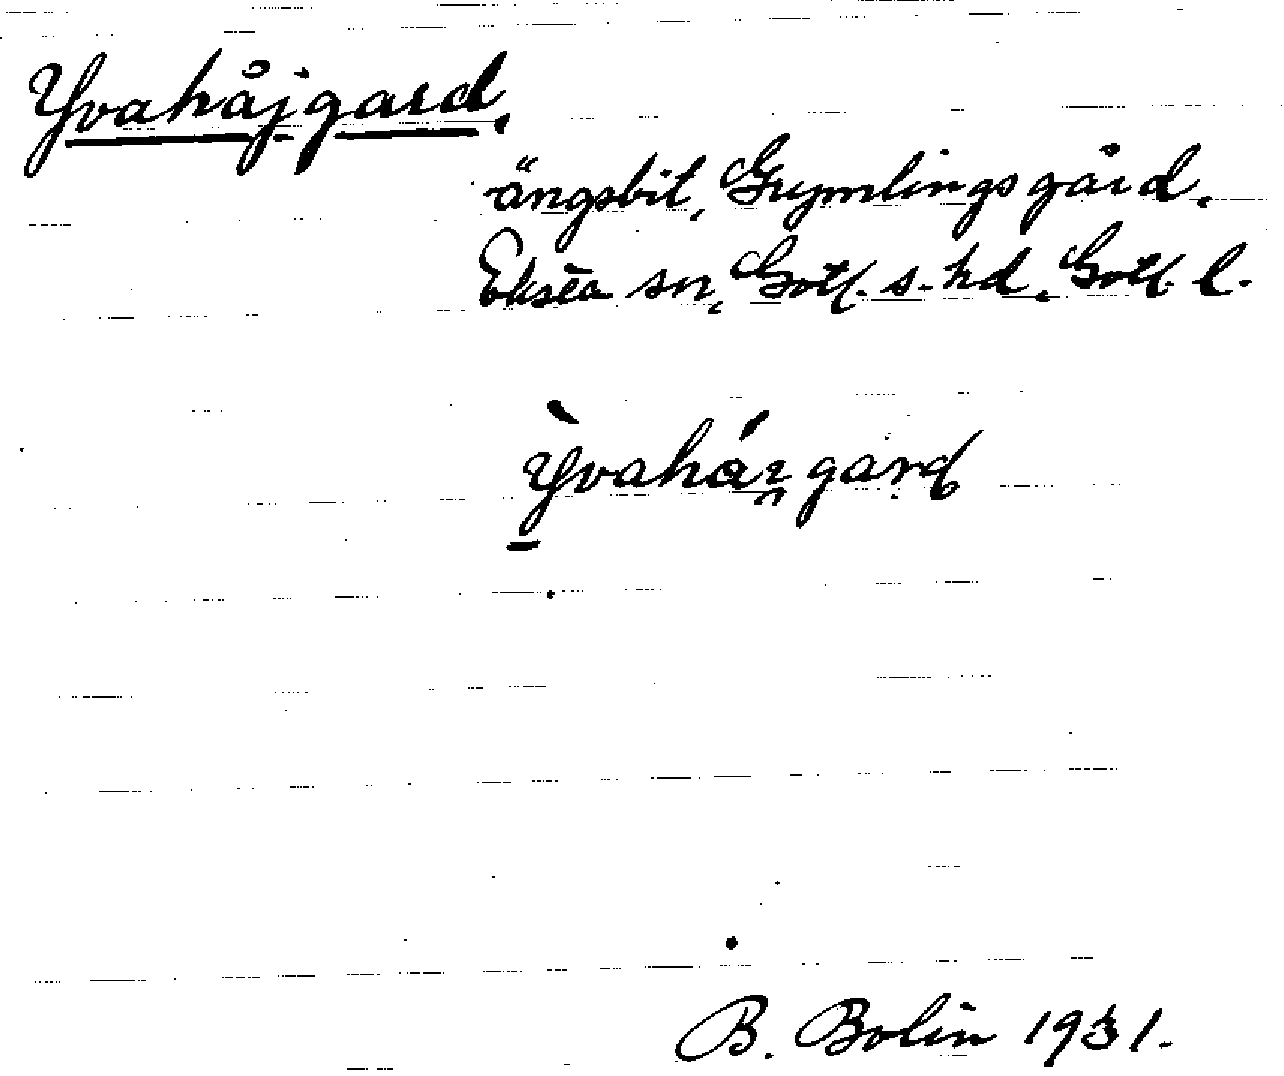 Yvahåjgard.
ängsbit, Grymlingsgård,
Eksta sn, Gotl. s. hd, Gotl. l.
B. Bolin 1931.